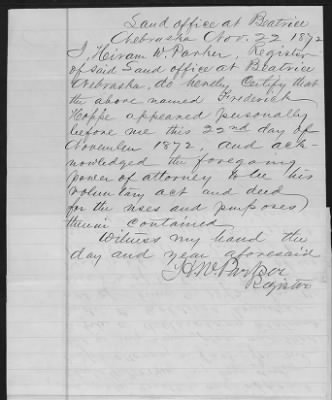 Land office at Beatrice
Nebraska Nov. 22 1872
I, Hiram W. Parker, Register
of said Land office at Beatrice
Nebraska, do hereby Certify that
the above named Frederick
Hoppe appeared personally
before me this 22nd day of
November 1872, and ack-
nowledged the foregoing
power of attorney to be his
voluntary act and deed
for the uses and purposes
therein contained
Witness my hand the
day and year aforesaid
H.W. Parker
Register